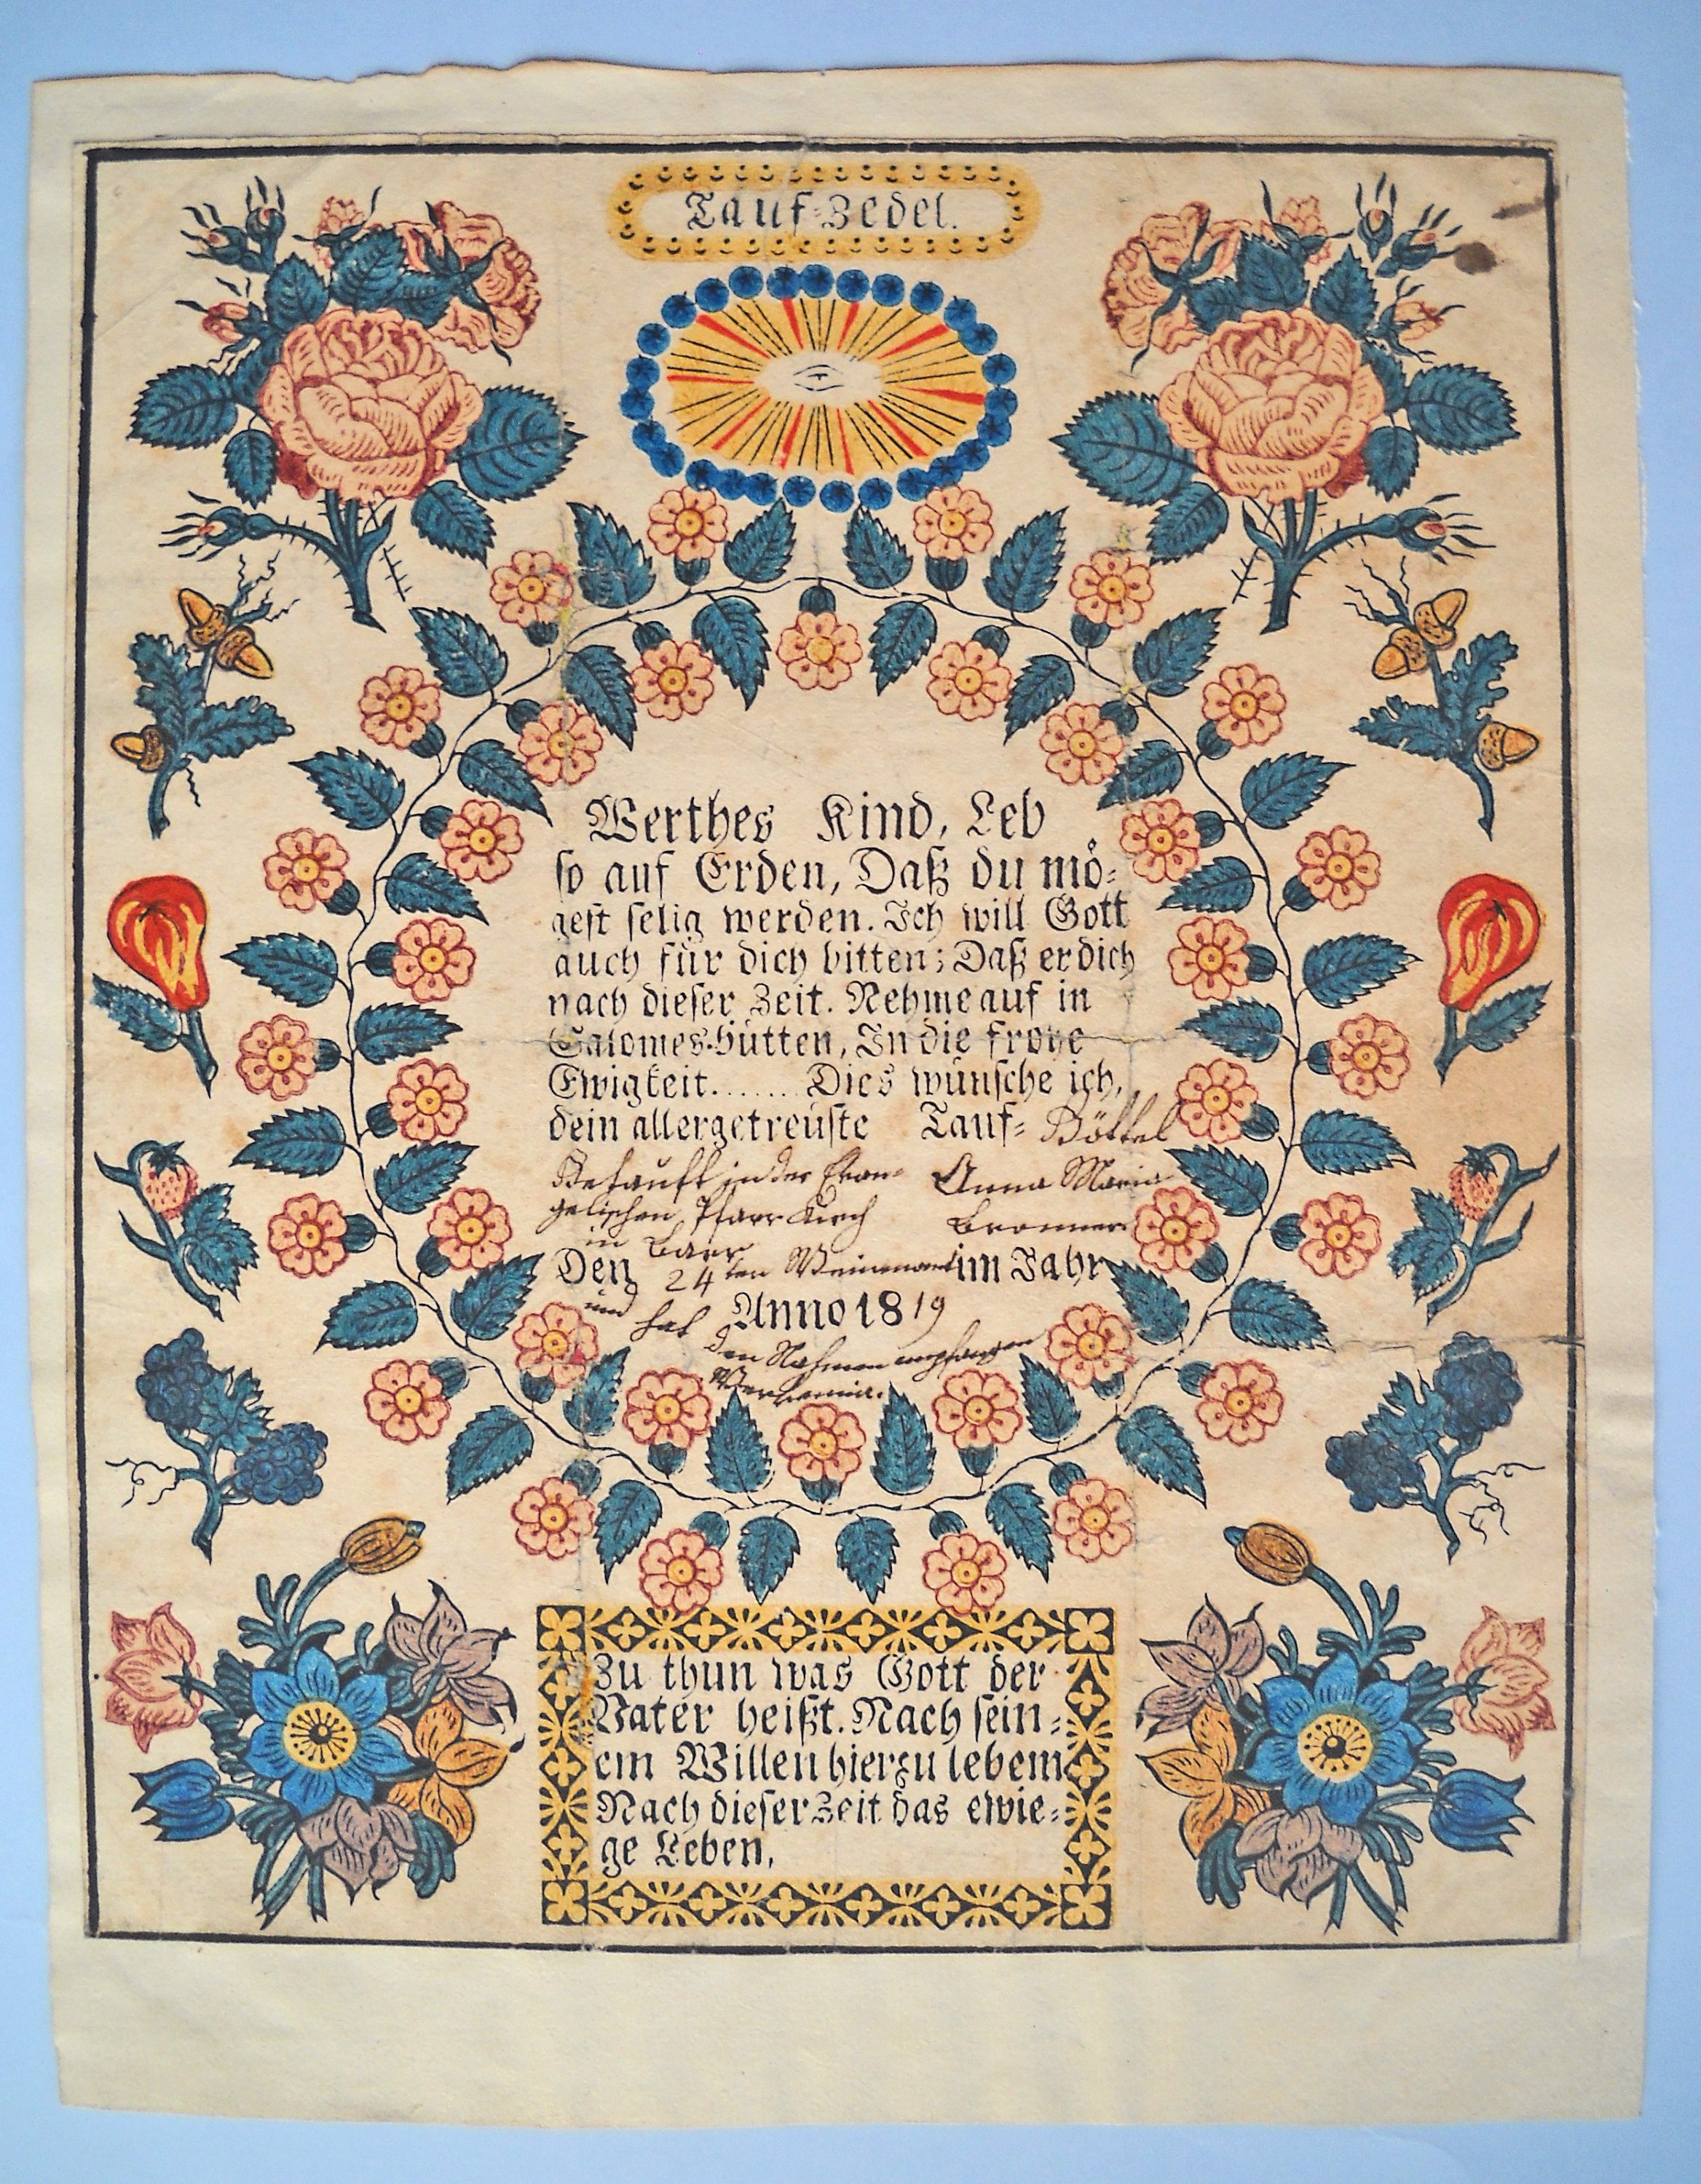 Tauf-Zedel.
Werthes Kind, Leb
so auf Erden, Daß du mö-
gest selig werden. Ich will Gott
auch für dich bitten; Daß er dich
nach dieser Zeit. Nehme auf in
Salomes-Hütten, In die frohe
Ewigkeit....... Dies wünsche ich,
dein allergetreüste Tauf- Göttel
Getauft in der Evan- Anna Maria
gelischen Pfarr Kirch Bronner
in Barr
Den 24ten Weinmonat im Jahr
Anno 1819
und hat
den Nahmen empfangen
Zu thun was Gott der
Vater heißt. Nach sein-
em Willen hierzu lebem
Nach dieser Zeit das ewie-
ge Leben,